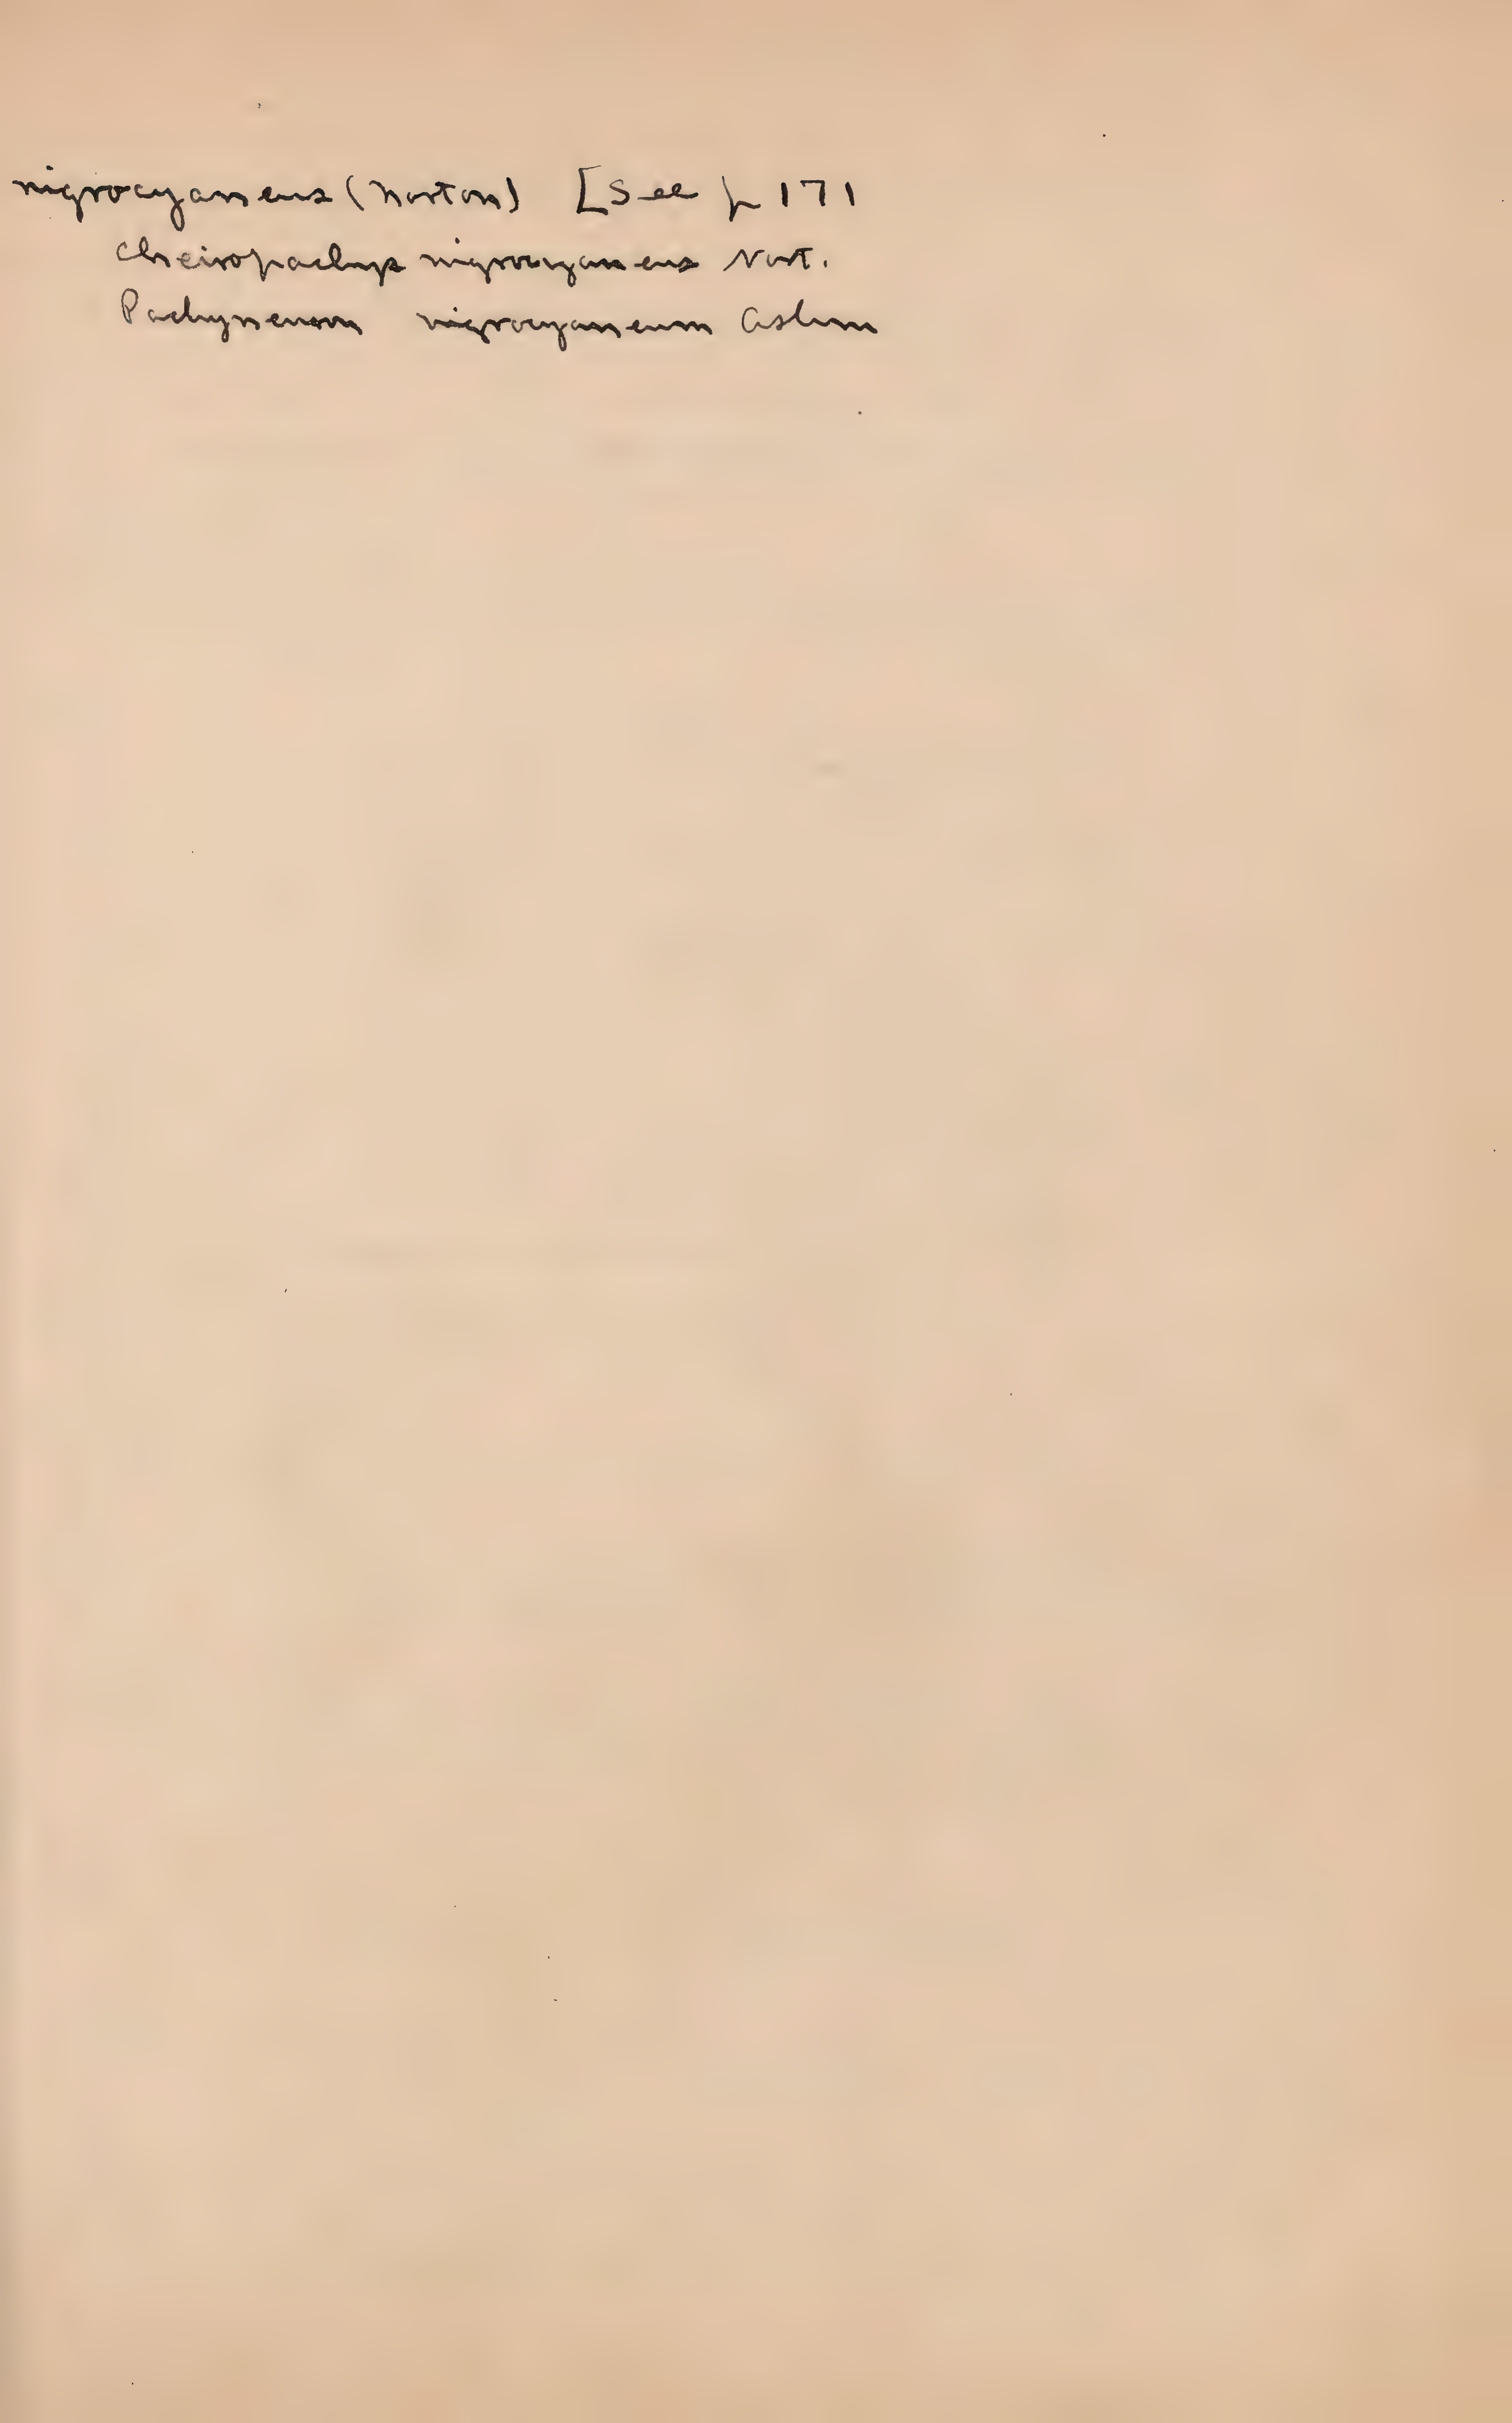 nigrocyaneus (Norton) [See p 171
Cheiropachys nigrocyaneus Nort.
Pachyneuron nigrocyaneum Ashm